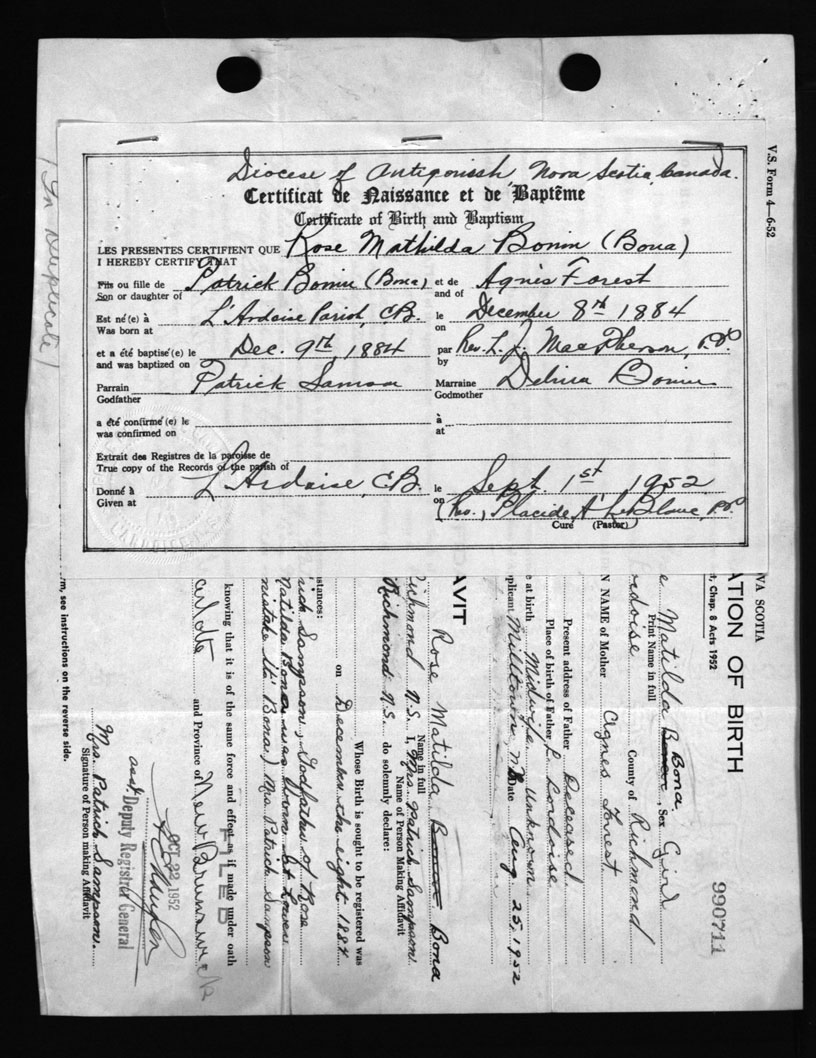 Diocese of Antigonish Nova Scotia, Canada.
Certificat de Naissance et de Baptême
Certificate of Birth and Baptism
LES PRESENTES CERTIFIENT QUE
I HEREBY CERTIFY THAT
Rose Mathilda Bonin (Bona)
Fils ou fille de
Son or daughter of
Patrick Bonin (Bona)
et de
and of
Agnès Forest
Est né(e) à
Was born at
L'Ardoise Parish, C.B.
le
on
December 8th, 1884
et a été baptisé(e) le
and was baptized on
Dec. 9th, 1884
par
by
Rev. L. J. MacPherson, P.P.
Parrain
Godfather
Patrick Samson
Marraine
Godmother
Bonin
a été confirmé(e) le
was confirmed on
à
at
Extrait des Registres de la paroisse de
True copy of the Records of the parish of
Donné à
Given at
L'Ardoise, C.B.
le
on
Sept 1st 1952
(Rev.) Placide A. LeBlanc, P.P.
Curé (Pastor)
V.S. Form 4—6-52
(In Duplicate)
VA SCOTIA
, Chap. 8 Acts 1952
ATION OF BIRTH
990711
Matilda Bona. Sex Girl
Print Name in full
rdoise County of Richmond
N NAME of Mother Agnes Forest
Present address of Father Deceased
Place of birth of Father L'ardoise
e at birth Midwife unknown
plicant Milltown N.B. Date Aug. 25, 1952
AVIT
Rose Matilda Bona
Name in full
Richmond N.S. I, Mrs Patrick Sampson
Name of Person Making Affidavit
Richmond N.S. do solemnly declare:
Whose Birth is sought to be registered was
on December the eight 1884
stances:
rick Sampson, Godfather of Rose
Matilda Bona was born at Lower
mistake its Bona.) Mrs. Patrick Sampson
knowing that it is of the same force and effect as if made under oath
FILED
and Province of New Brunswick
OCT 22 1952
asst. Deputy Registrar General
Mrs. Patrick Sampson.
Signature of Person making Affidavit
rm, see instructions on the reverse side.